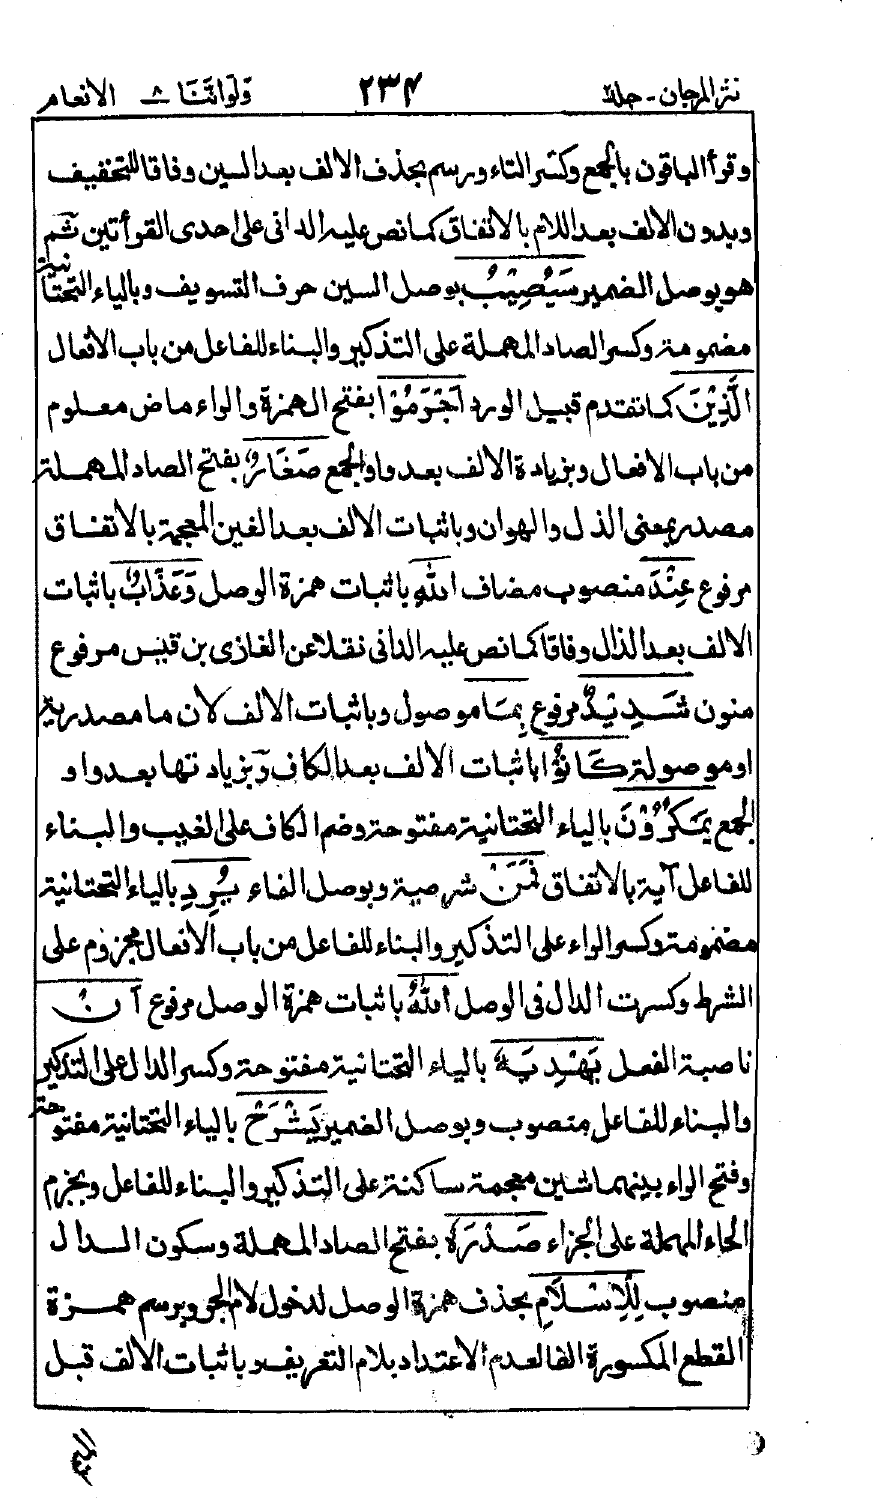 نثر المرجان - جلد ٢٣٤ وَلَوْ أَنَّنَا ٨ الانعام
وقرأ الباقون بالجمع وكسر التاء ورسم بحذف الالف بعد السين وفاقا للتخفيف
وبدون الالف بعد اللام بالاتفاق كما نص عليه الدانى على احدى القرأتين ثم
هو بوصل الضمير سَيُصِيْبُ بوصل السين حرف التسويف وبالياء التحتانية
مضمومة وكسر الصاد المهملة على التذكير والبناء للفاعل من باب الافعال
الَّذِيْنَ كما تقدم قبيل الورد اَجْرَمُوْا بفتح الهمزة والراء ماض معلوم
من باب الافعال وبزيادة الالف بعد واو الجمع صَغَارٌ بفتح الصاد المهملة
مصدر بمعنى الذل والهوان وباثبات الالف بعد الغين المعجمة بالاتفاق
مرفوع عِنْدَ منصوب مضاف اللهِ باثبات همزة الوصل وَعَذَابٌ باثبات
الالف بعد الذال وفاقا كما نص عليه الدانى نقلا عن الغازى بن قيس مرفوع
منون شَدِيْدٌ مرفوع بِمَا موصول وباثبات الالف لان ما مصدرية
او موصولة كَانُوْا باثبات الالف بعد الكاف وبزيادتها بعد واو
الجمع يَمْكُرُوْنَ بالياء التحتانية مفتوحة وضم الكاف على الغيب والبناء
للفاعل آية بالاتفاق فَمَنْ شرطية وبوصل الفاء يُرِدِ بالياء التحتانية
مضمومة وكسر الراء على التذكير والبناء للفاعل من باب الافعال مجزوم على
الشرط وكسرت الدال فى الوصل اللهُ باثبات همزة الوصل مرفوع اَنْ
ناصبة الفعل يَهْدِيَهٗ بالياء التحتانية مفتوحة وكسر الدال على التذكير
والبناء للفاعل منصوب وبوصل الضمير يَشْرَحْ بالياء التحتانية مفتوحة
وفتح الراء بينهما شين معجمة ساكنة على التذكير والبناء للفاعل وبجزم
الحاء المهملة على الجزاء صَدْرَهٗ بفتح الصاد المهملة وسكون الدال
منصوب لِلْاِسْلَامِ بحذف همزة الوصل لدخول لام الجر وبرسم همزة
القطع المكسورة الفا لعدم الاعتداد بلام التعريف وباثبات الالف قبل